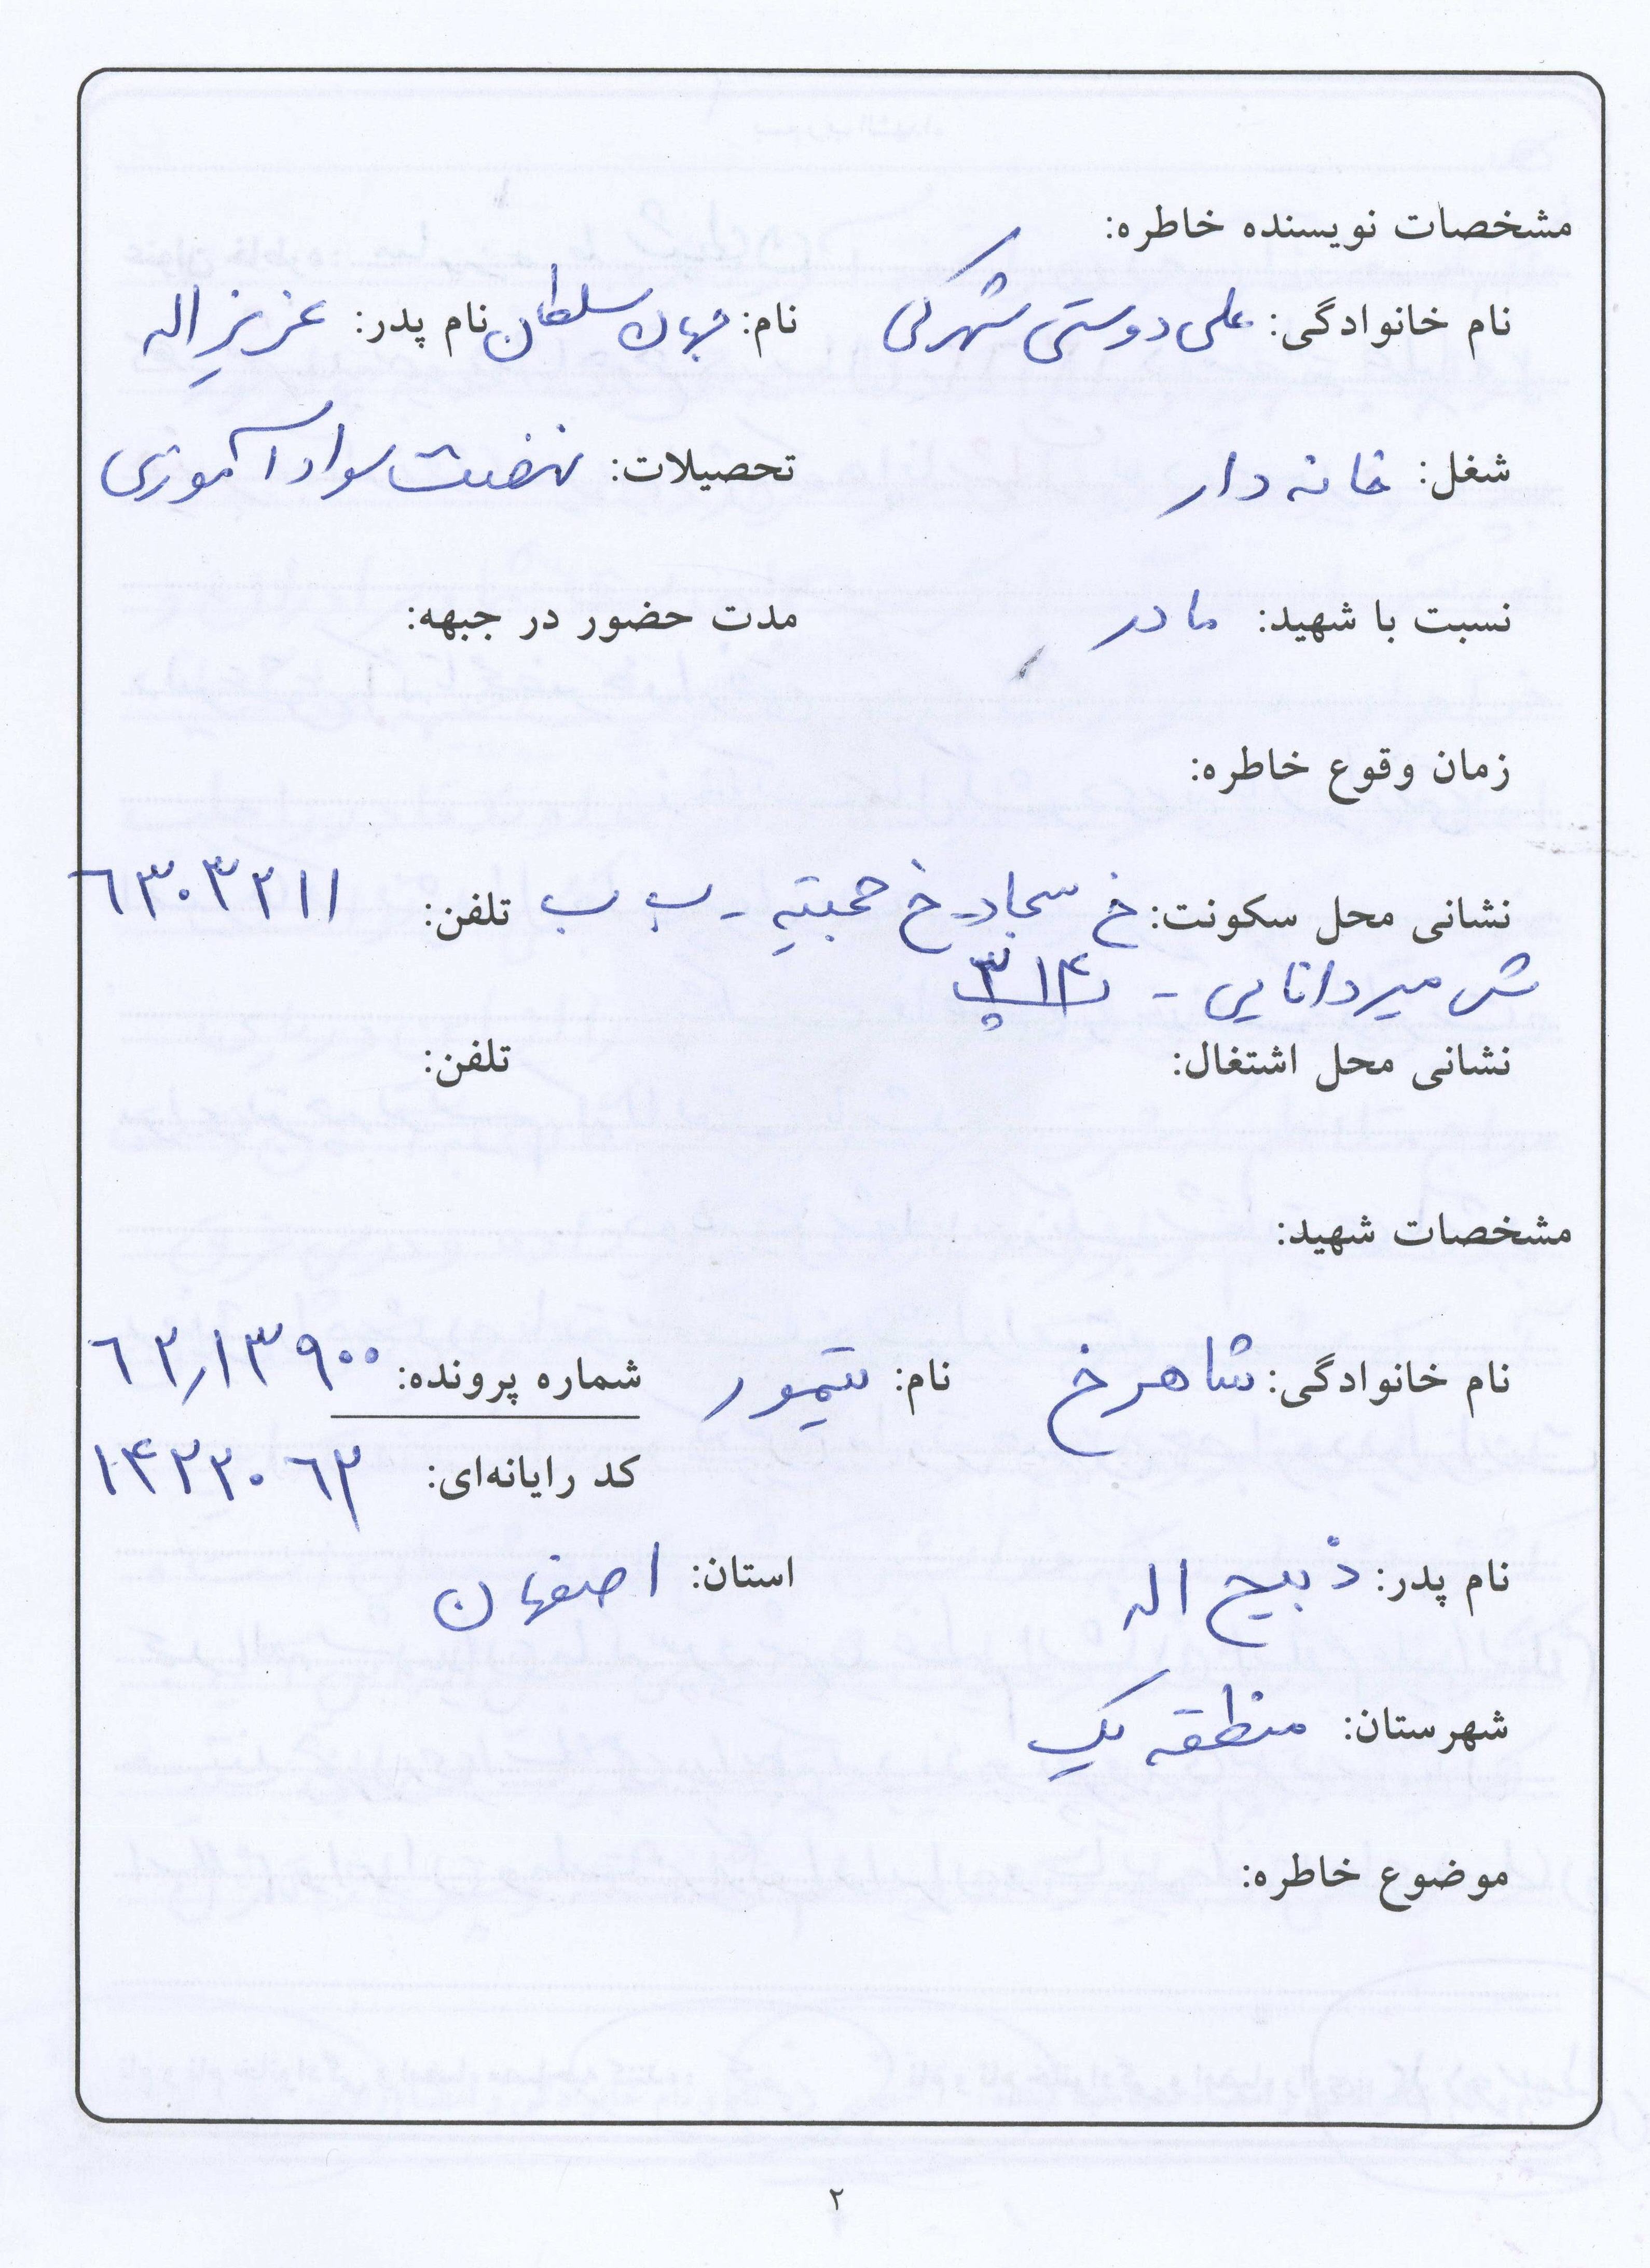 مشخصات نویسنده خاطره:
نام خانوادگی: علی دوستی شهرکی نام: جهان سلطان نام پدر: عزیز اله
شغل: خانه دار تحصیلات: نهضت سواد آموزی
نسبت با شهید: مادر مدت حضور در جبهه:
زمان وقوع خاطره:
نشانی محل سکونت: خ سجاد - خ - ب ب تلفن: ٦٣٠٣٢١١
ش میردانایی - پ ٣١۴
نشانی محل اشتغال: تلفن:
مشخصات شهید:
نام خانوادگی: شاهرخ نام: تیمور شماره پرونده: ٦٢٫١٣٩٠٠
کد رایانه‌ای: ١۴٢٢٠٦٢
نام پدر: ذبیح اله استان: اصفهان
شهرستان: منطقه یک
موضوع خاطره:
۲